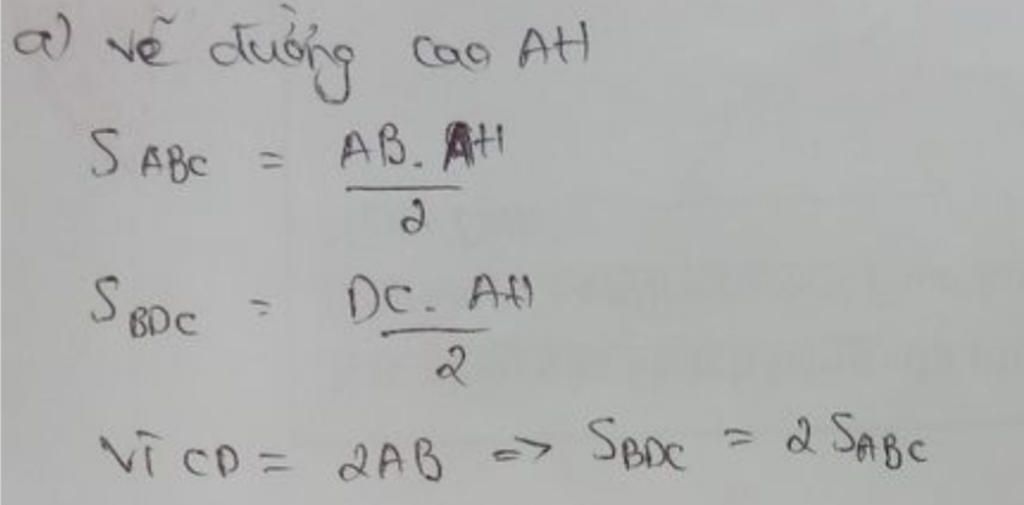 a) vẽ đường cao AH
S ABC = AB. AH / 2
S BDC = DC. AH / 2
Vì CD = 2AB => S BDC = 2 S ABC